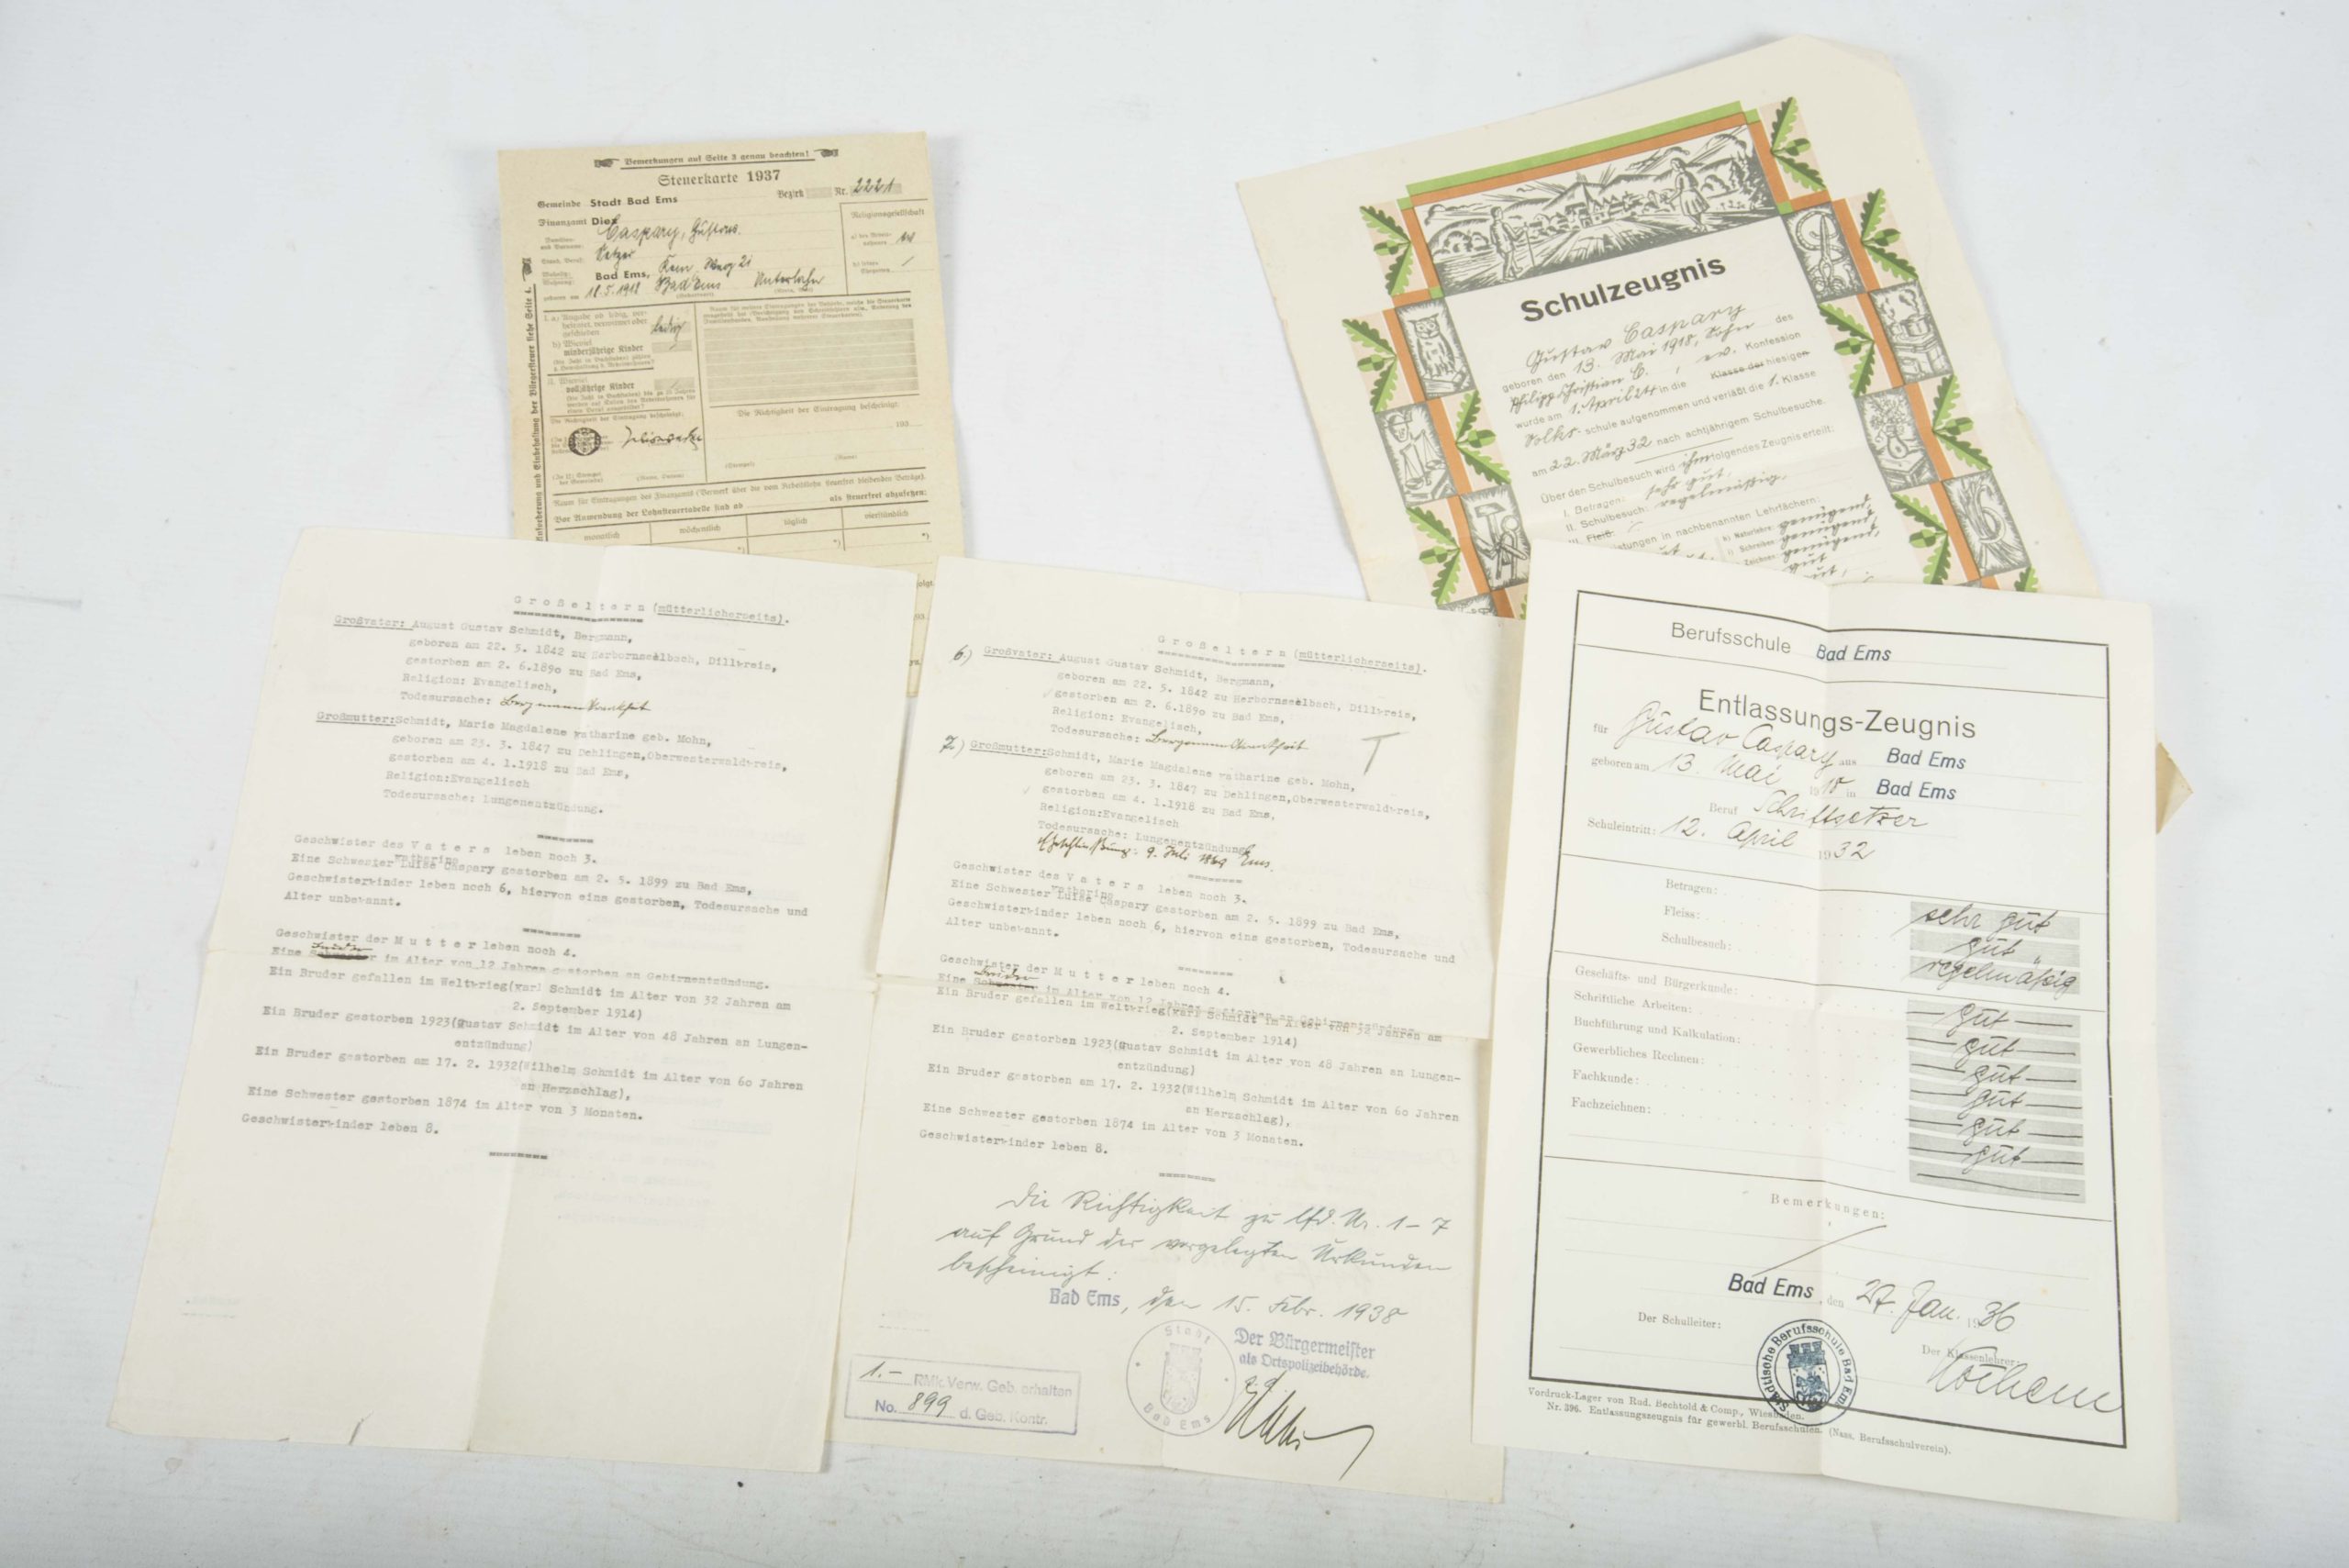 Bemerkungen auf Seite 3 genau beachten!
Steuerkarte 1937
Bezirk Nr. 2221
Gemeinde Stadt Bad Ems
Finanzamt Diez
Caspary, Gustav.
Setzer
Bad Ems,
Unterlahn
Bad Ems
Religionsgesellschaft
ledig
minderjährige Kinder
volljährige Kinder
Die Richtigkeit der Eintragung bescheinigt:
Vor Anwendung der Lohnsteuertabelle sind ab als steuerfrei abzusetzen:
monatlich wöchentlich täglich vierstündlich
Schulzeugnis
Gustav Caspary
geboren den 13. Mai 1918, Sohn des
Philipp Christian C. , ev. Konfession
wurde am 1. April 24 in die Klasse der hiesigen
Volks- schule aufgenommen und verläßt die 1. Klasse
am 22. März 32 nach achtjährigem Schulbesuche.
Über den Schulbesuch wird ihm folgendes Zeugnis erteilt:
I. Betragen: sehr gut.
II. Schulbesuch: regelmäßig.
III. Fleiß:
in nachbenannten Lehrfächern:
h) Naturlehre: genügend,
i) Schreiben: genügend,
Zeichnen: genügend,
gut
Großeltern (mütterlicherseits).
Großvater: August Gustav Schmidt, Bergmann,
geboren am 22. 5. 1842 zu Herbornseelbach, Dillkreis,
gestorben am 2. 6.1890 zu Bad Ems,
Religion: Evangelisch,
Todesursache: Bergmannskrankheit
Großmutter:Schmidt, Marie Magdalene Katharine geb. Mohn,
geboren am 23. 3. 1847 zu Dehlingen,Oberwesterwaldkreis,
gestorben am 4. 1.1918 zu Bad Ems,
Religion:Evangelisch
Todesursache: Lungenentzündung.
Geschwister des Vaters leben noch 3.
Katharine
Eine Schwester Luise Caspary gestorben am 2. 5. 1899 zu Bad Ems,
Geschwisterkinder leben noch 6, hiervon eins gestorben, Todesursache und
Alter unbekannt.
Geschwister der Mutter leben noch 4.
Bruder
Eine Schwester im Alter von 12 Jahren gestorben an Gehirnentzündung.
Ein Bruder gefallen im Weltkrieg(Karl Schmidt im Alter von 32 Jahren am
2. September 1914)
Ein Bruder gestorben 1923(Gustav Schmidt im Alter von 48 Jahren an Lungen-
entzündung)
Ein Bruder gestorben am 17. 2. 1932(Wilhelm Schmidt im Alter von 60 Jahren
an Herzschlag),
Eine Schwester gestorben 1874 im Alter von 3 Monaten.
Geschwisterkinder leben 8.
Großeltern (mütterlicherseits).
6) Großvater: August Gustav Schmidt, Bergmann,
geboren am 22. 5. 1842 zu Herbornseelbach, Dillkreis,
gestorben am 2. 6.1890 zu Bad Ems,
Religion: Evangelisch,
Todesursache: Bergmannskrankheit
7) Großmutter:Schmidt, Marie Magdalene Katharine geb. Mohn,
geboren am 23. 3. 1847 zu Dehlingen,Oberwesterwaldkreis,
gestorben am 4. 1.1918 zu Bad Ems,
Religion:Evangelisch
Todesursache: Lungenentzündung
Eheschließung: 9. Juli 1869 Ems.
Geschwister des Vaters leben noch 3.
Katharine
Eine Schwester Luise Caspary gestorben am 2. 5. 1899 zu Bad Ems,
Geschwisterkinder leben noch 6, hiervon eins gestorben, Todesursache und
Alter unbekannt.
Geschwister der Mutter leben noch 4.
Bruder
Eine Schwester im Alter von 12 Jahren gestorben an Gehirnentzündung
Ein Bruder gefallen im Weltkrieg(Karl Schmidt im Alter von 32 Jahren am
2. September 1914)
Ein Bruder gestorben 1923(Gustav Schmidt im Alter von 48 Jahren an Lungen-
entzündung)
Ein Bruder gestorben am 17. 2. 1932(Wilhelm Schmidt im Alter von 60 Jahren
an Herzschlag),
Eine Schwester gestorben 1874 im Alter von 3 Monaten.
Geschwisterkinder leben 8.
Die Richtigkeit zu lfd. Nr. 1-7
auf Grund der vorgelegten Urkunden
bescheinigt:
Bad Ems, den 15. Febr. 1938
Stadt
Bad Ems
Der Bürgermeister
als Ortspolizeibehörde.
1.- RMk. Verw. Geb. erhalten
No. 899 d. Geb. Kontr.
Berufsschule Bad Ems
Entlassungs-Zeugnis
für Gustav Caspary aus Bad Ems
geboren am 13. Mai 1918 in Bad Ems
Beruf Schriftsetzer
Schuleintritt: 12. April 1932
Betragen: sehr gut
Fleiss: gut
Schulbesuch: regelmäßig
Geschäfts- und Bürgerkunde: gut
Schriftliche Arbeiten: gut
Buchführung und Kalkulation: gut
Gewerbliches Rechnen: gut
Fachkunde: gut
Fachzeichnen: gut
Bemerkungen:
Bad Ems, den 27. Jan. 1936
Der Schulleiter:
Der Klassenlehrer:
Städtische Berufsschule Bad Ems
Vordruck-Lager von Rud. Bechtold & Comp., Wiesbaden.
Nr. 396. Entlassungszeugnis für gewerbl. Berufsschulen. (Nass. Berufsschulverein).